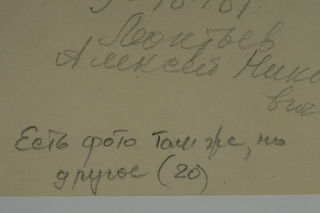 Леонтьев
Алексей Нико
вич
Есть фото там же, но
другое (20)